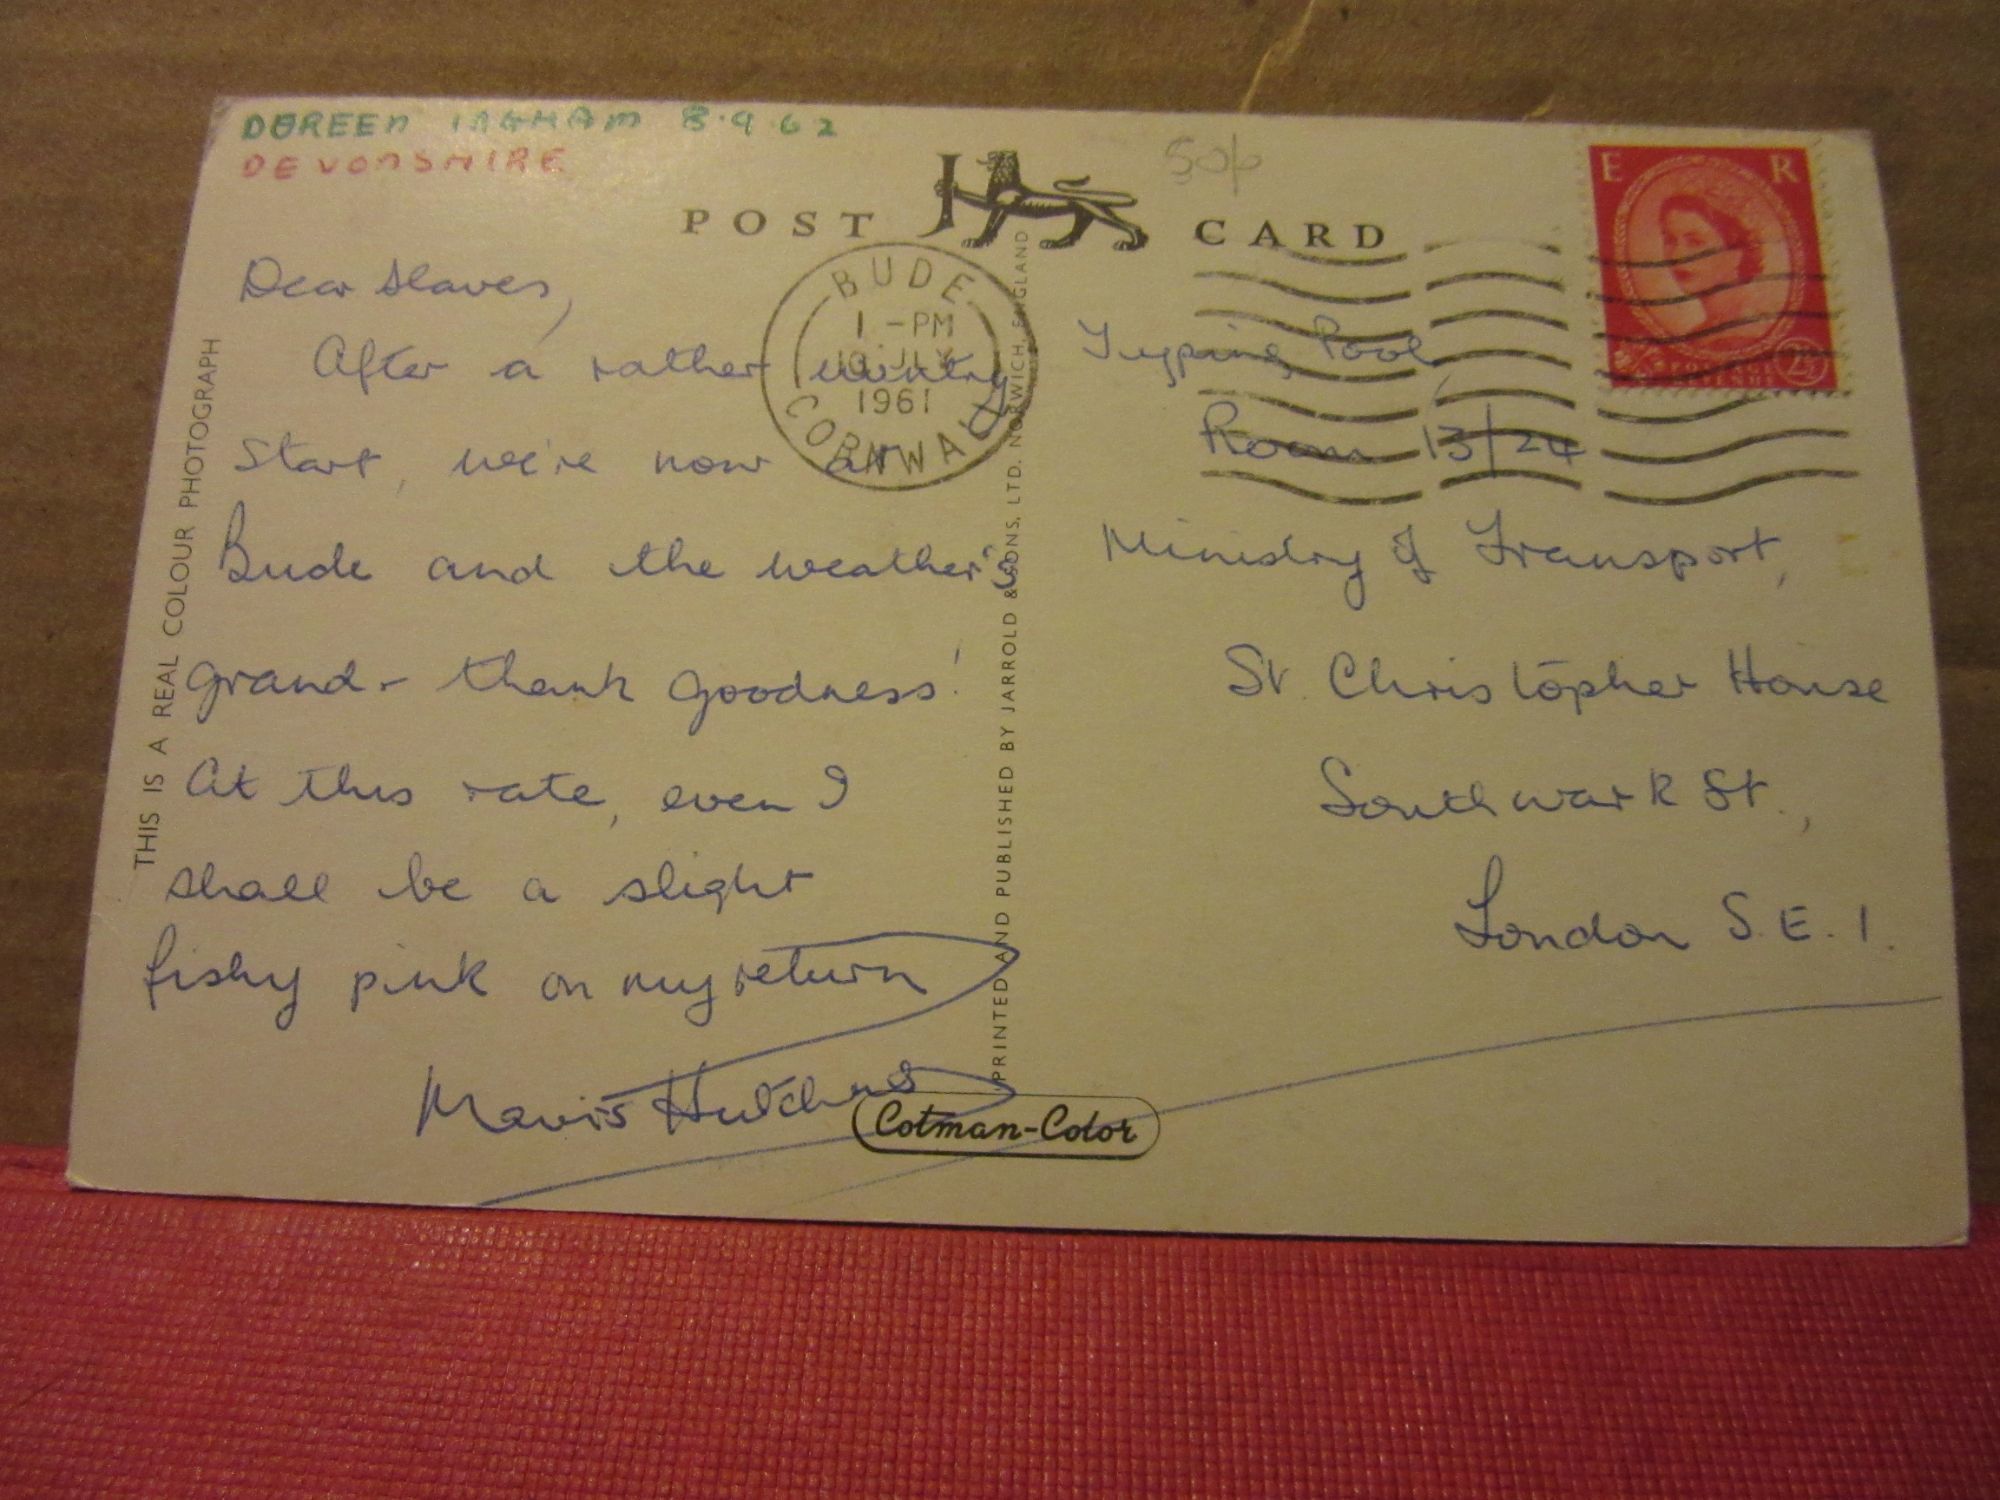 DOREEN INGHAM 8.9.62
DEVONSHIRE
50p
POST CARD
E R
POSTAGE REVENUE 2½
BUDE
1 -PM
10 JLY
1961
CORNWALL
Dear Slaves,
After a rather wintry
start, we're now at
Bude and the weather's
grand - thank goodness!
At this rate, even I
shall be a slight
fishy pink on my return
Mavis Hutchins
Typing Pool,
Room 13/24
Ministry of Transport,
St. Christopher House
Southwark St.,
London S.E.1.
THIS IS A REAL COLOUR PHOTOGRAPH
PRINTED AND PUBLISHED BY JARROLD & SONS, LTD. NORWICH, ENGLAND
Cotman-Color